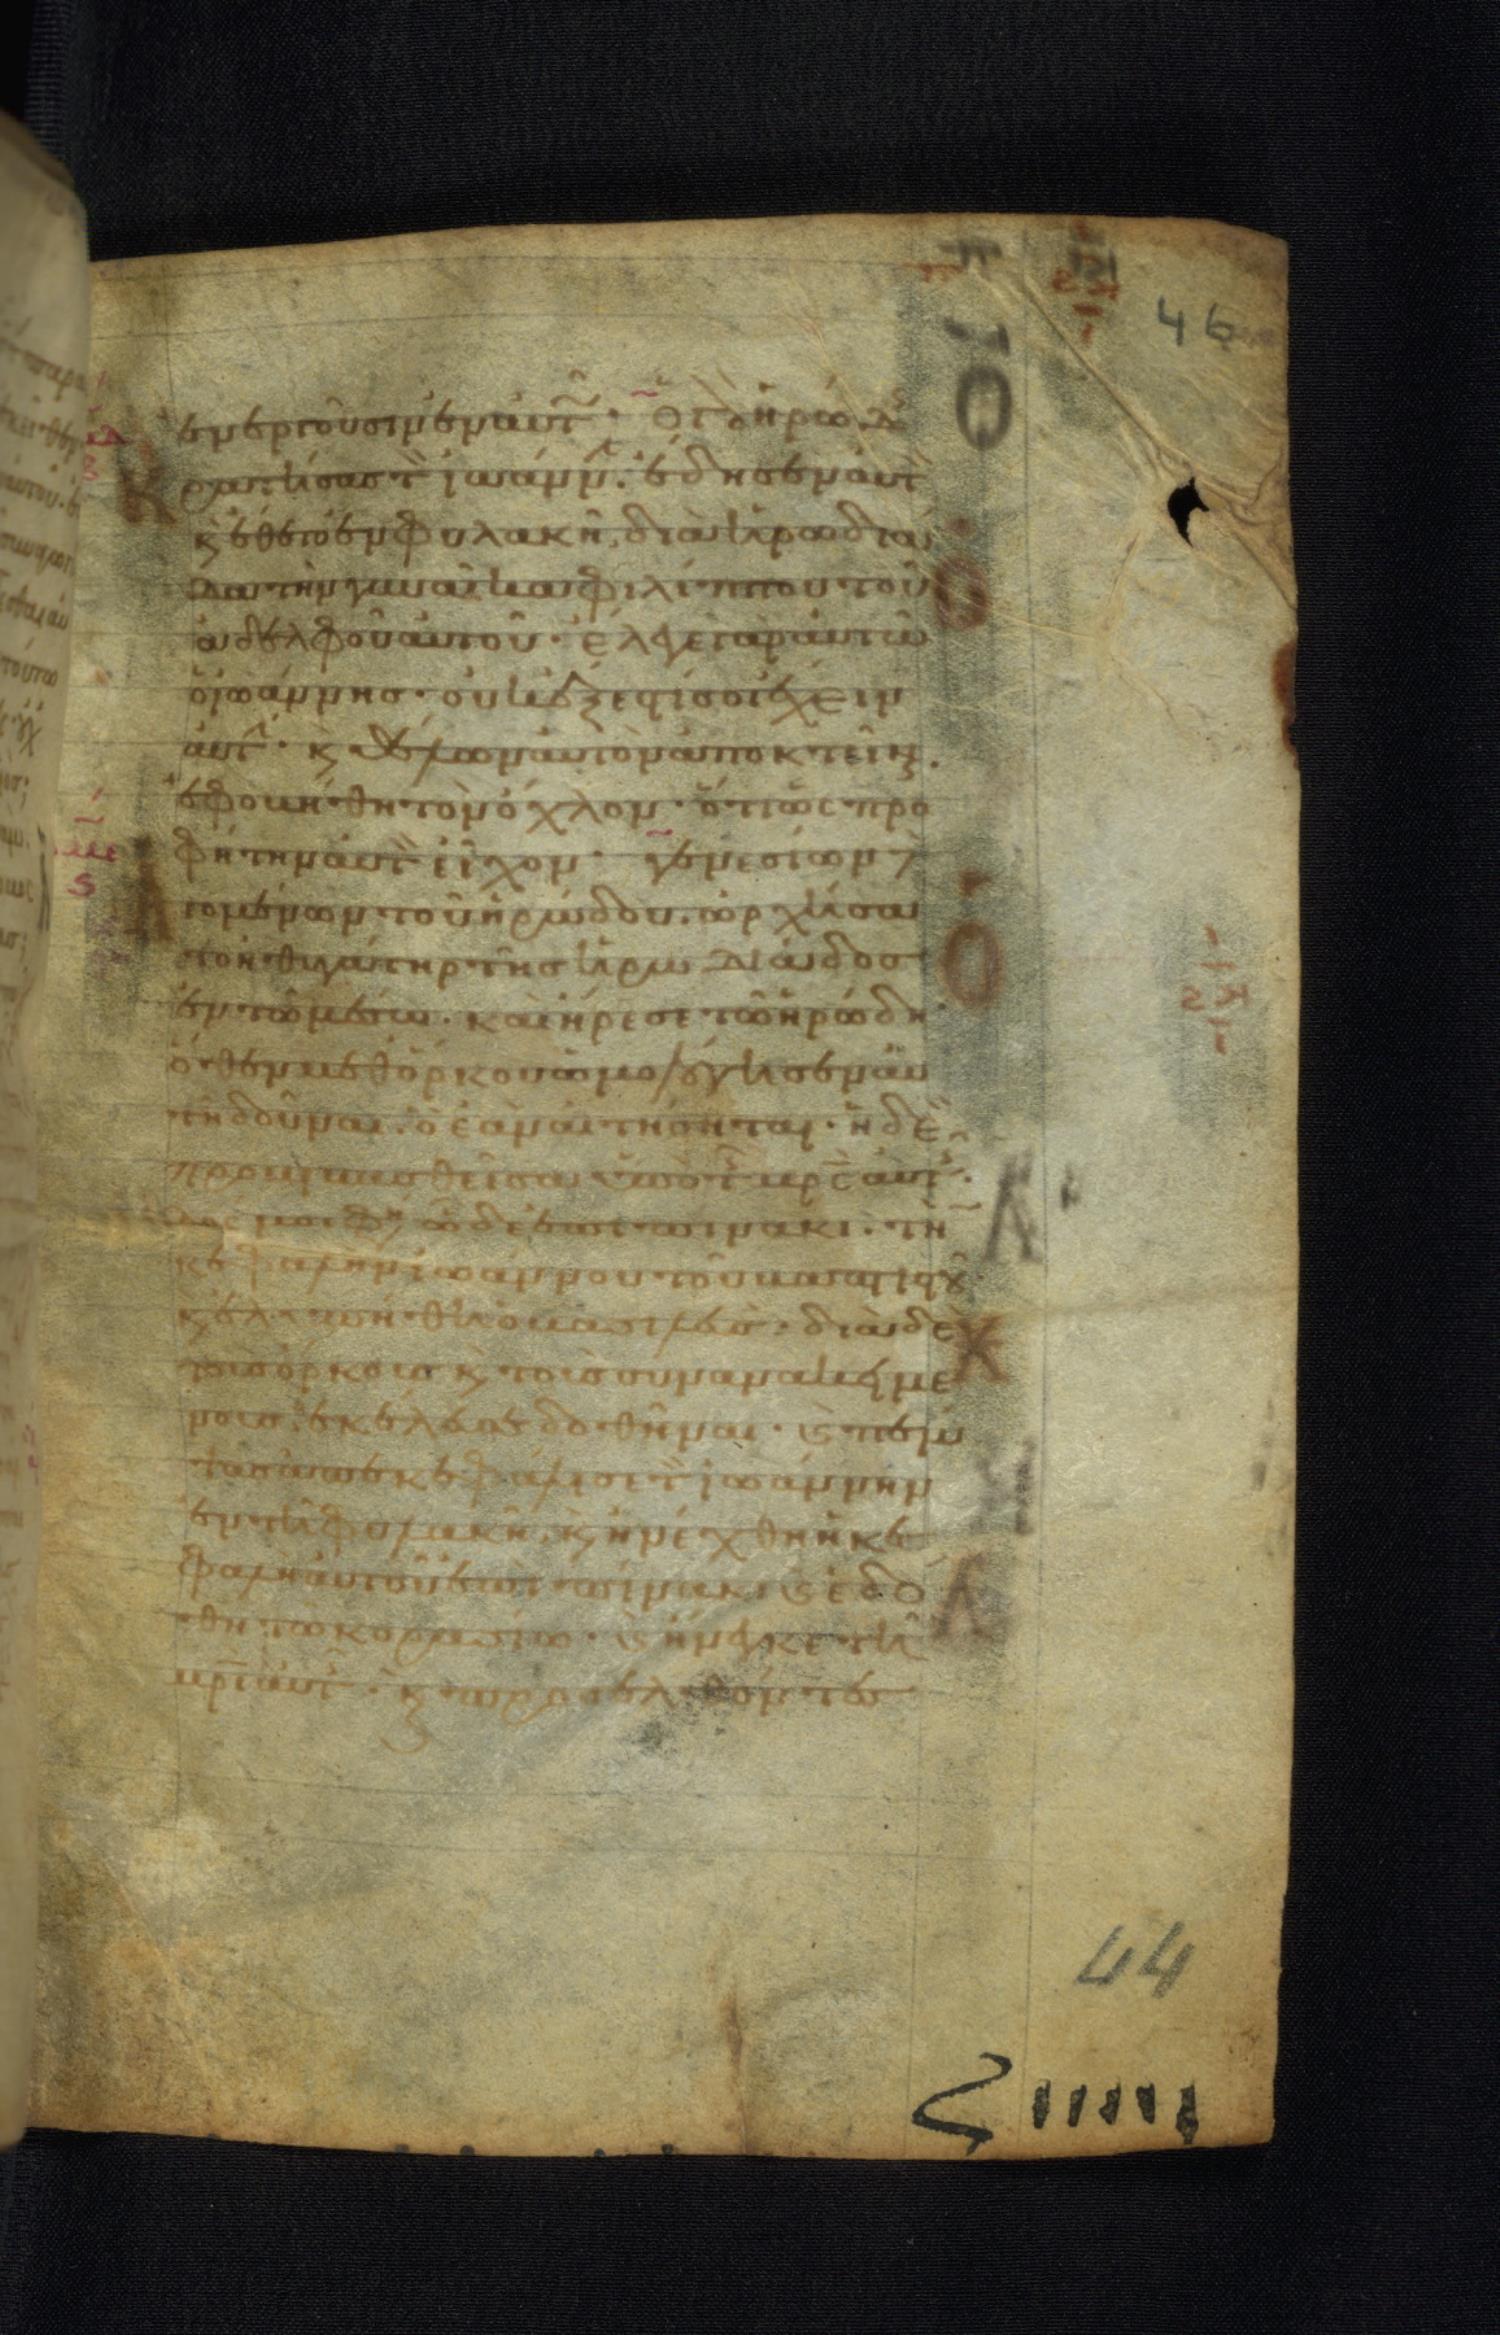 46
ἐνεργοῦσιν ἐν αὐτῶ· ὁ γ(ὰρ) ἡρώδ(ης)
Κρατήσας τ(ὸν) ἰωάνν(ην)· ἔδησεν αὐτ(ὸν)
κ(αὶ) ἔθετο ἐν φυλακῆ, διὰ ἡρωδιά
δα τὴν γυναῖκα φιλίππου τοῦ
ἀδελφοῦ αὐτοῦ· ἔλεγε γὰρ αὐτῶ
ὁ ἰωάννης· οὐκ ἔξεστί σοι ἔχειν
αὐτ(ήν)· κ(αὶ) θέλων αὐτὸν ἀποκτεῖν(αι).
ἐφοβήθη τὸν ὄχλον· ὅτι ὡς προ
φήτην αὐτ(ὸν) εἶχον· γενεσίων
Α γομένων τοῦ ἡρώδου. ὠρχήσα
το ἡ θυγάτηρ τῆς ἡρωδιάδος
ἐν τῶ μέσω· καὶ ἤρεσε τῶ ἡρώδη·
ὅθεν μεθ ὅρκου ὡμολόγησεν αὐ
τῆ δοῦναι. ὃ ἐὰν αἰτήσηται· ἡ δὲ
προβιβασθεῖσα ὑπὸ τ(ῆς) μρ(ὸ)ς αὐτ(ῆς)·
δός μοι φη(σὶν) ὧδε ἐπὶ πίνακι· τὴν
κεφαλὴν ἰωάννου τοῦ βαπτιστοῦ·
κ(αὶ) ἐλυπήθη ὁ βασιλεύς· διὰ δὲ
τοὺς ὅρκους κ(αὶ) τοὺς συνανακειμέ
νους· ἐκέλευσε δοθῆναι· κ(αὶ) πέμ
ψας ἀπεκεφάλισε τ(ὸν) ἰωάννην
ἐν τῆ φυλακῆ. κ(αὶ) ἠνέχθη ἡ κε
φαλὴ αὐτοῦ ἐπὶ πίνακι κ(αὶ) ἐδό
θη τῶ κορασίω· κ(αὶ) ἤνεγκε τῆ
μρὶ αὐτ(ῆς)· κ(αὶ) προσελθόντες
44